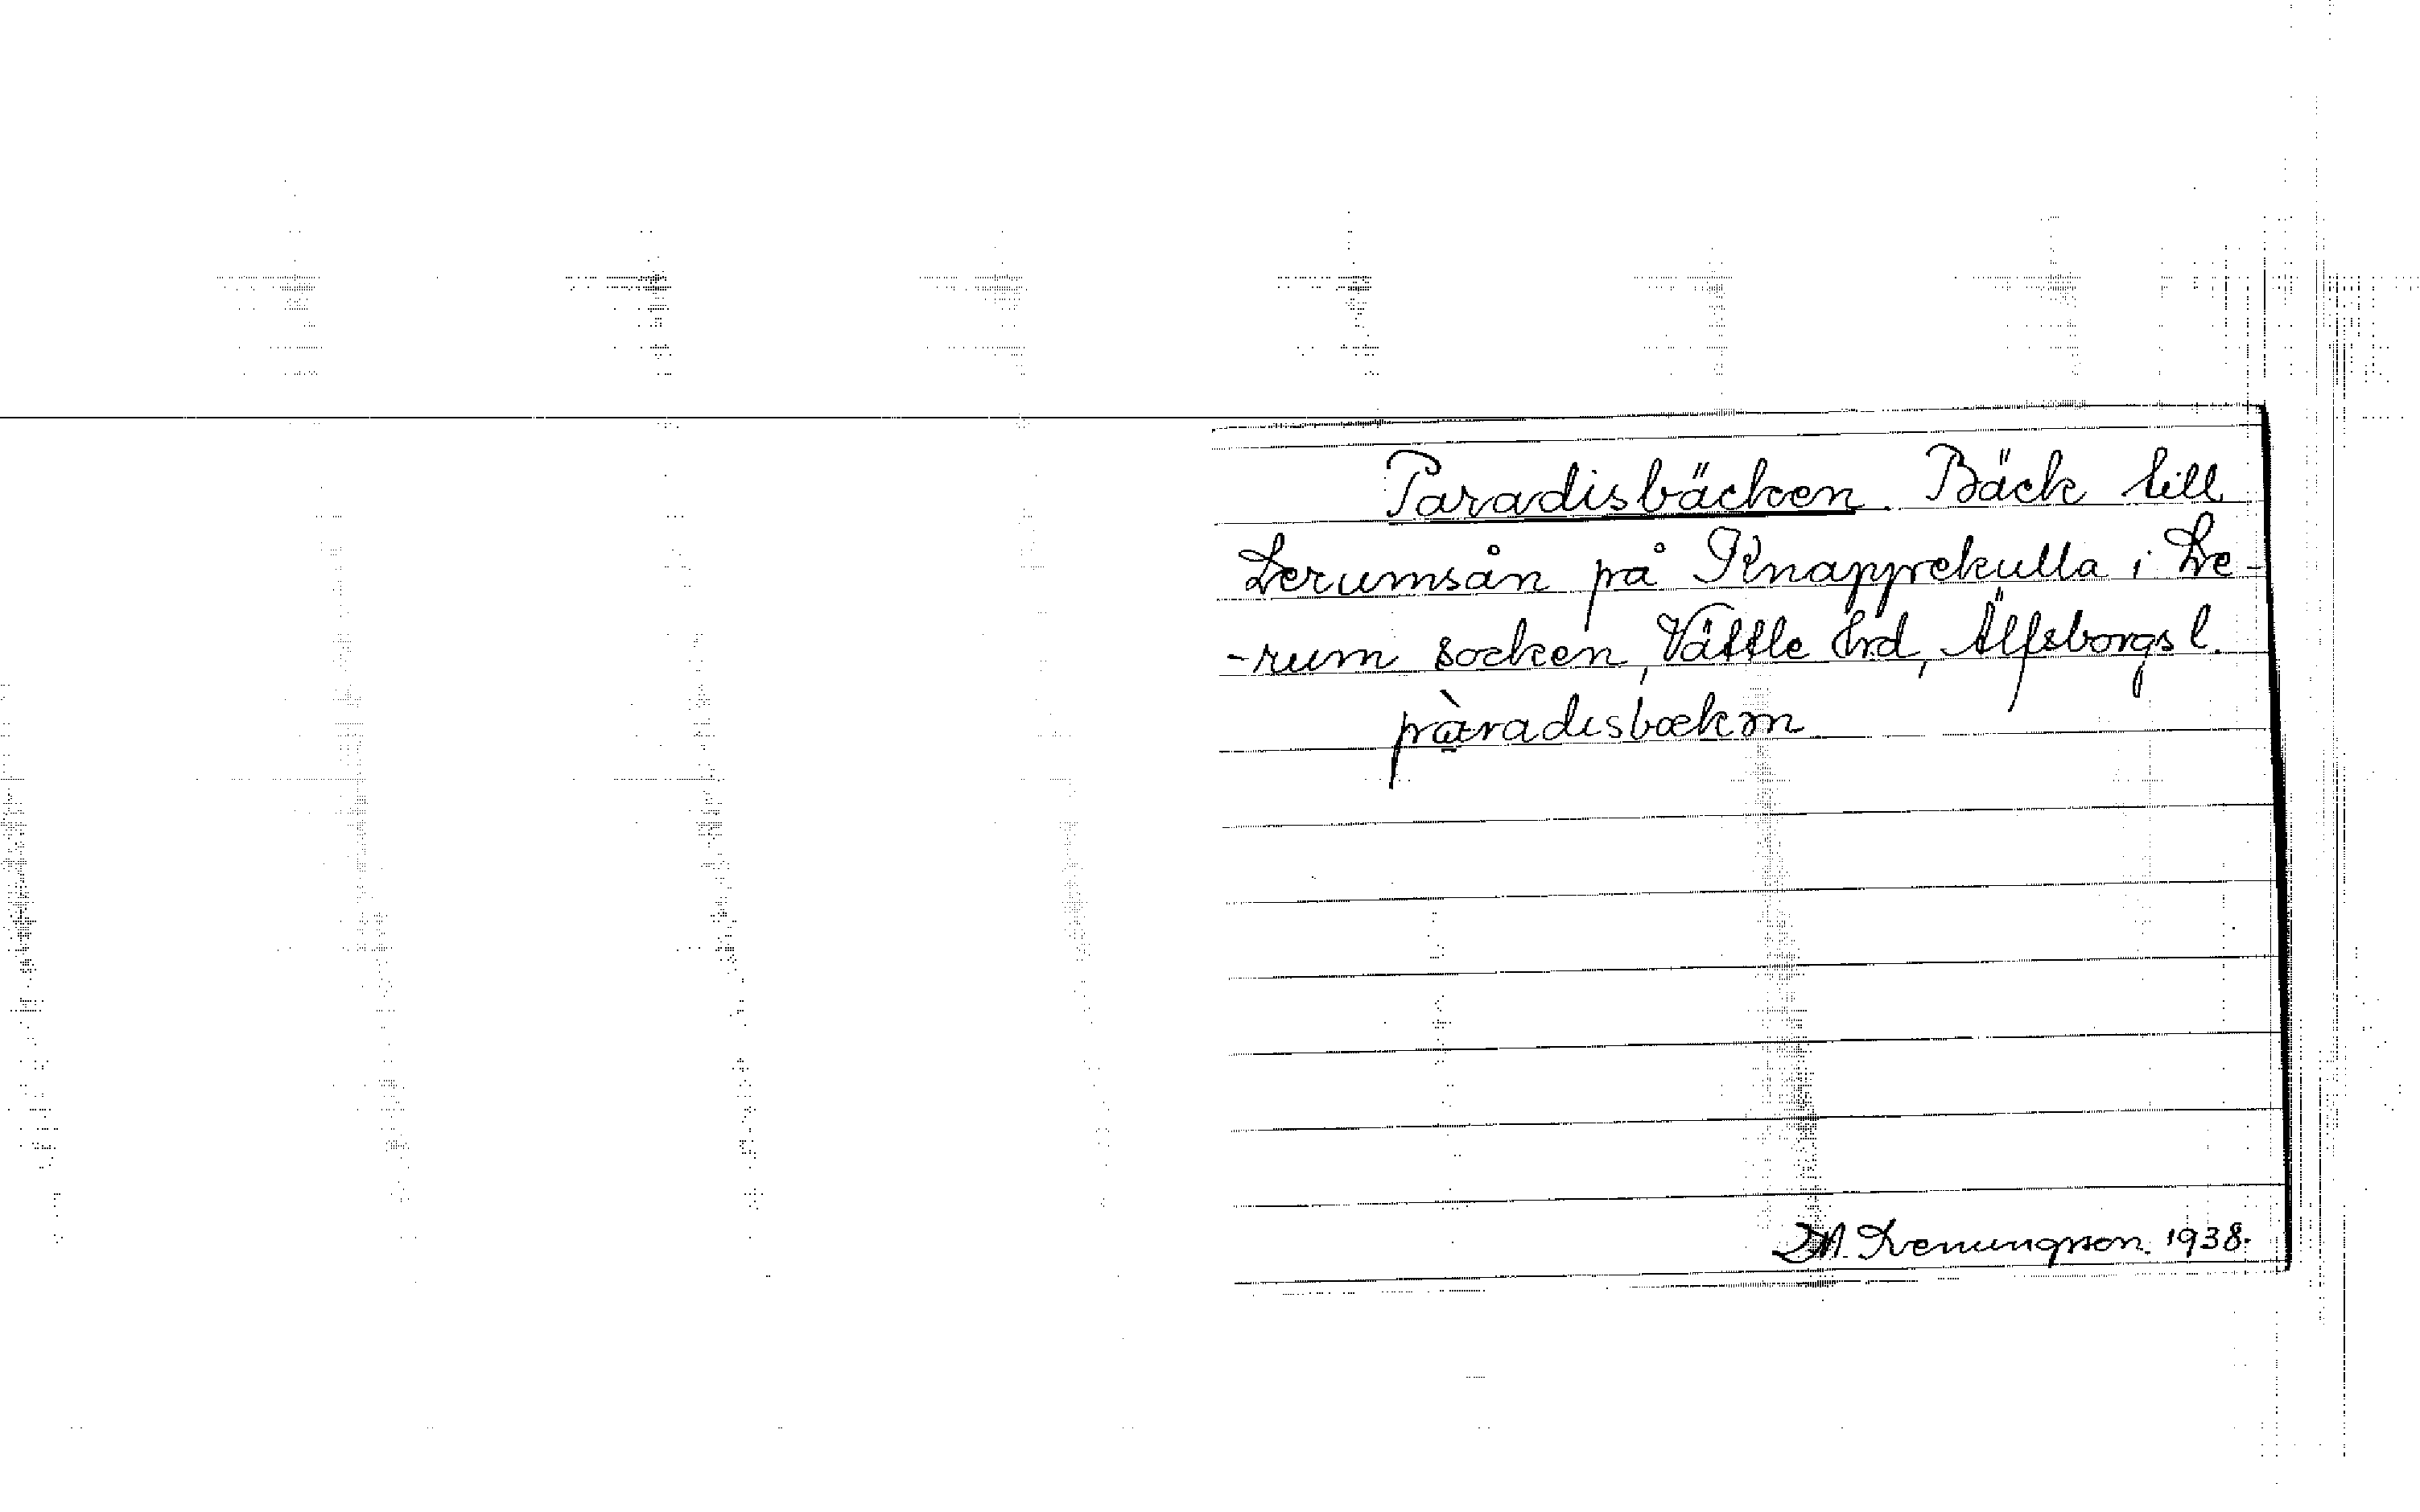 Paradisbäcken. Bäck till
Lerumsån på Knapprekulla i Le-
-rum socken, Vättle hrd, Älfsborgs l.
pàradisbækən
1938.